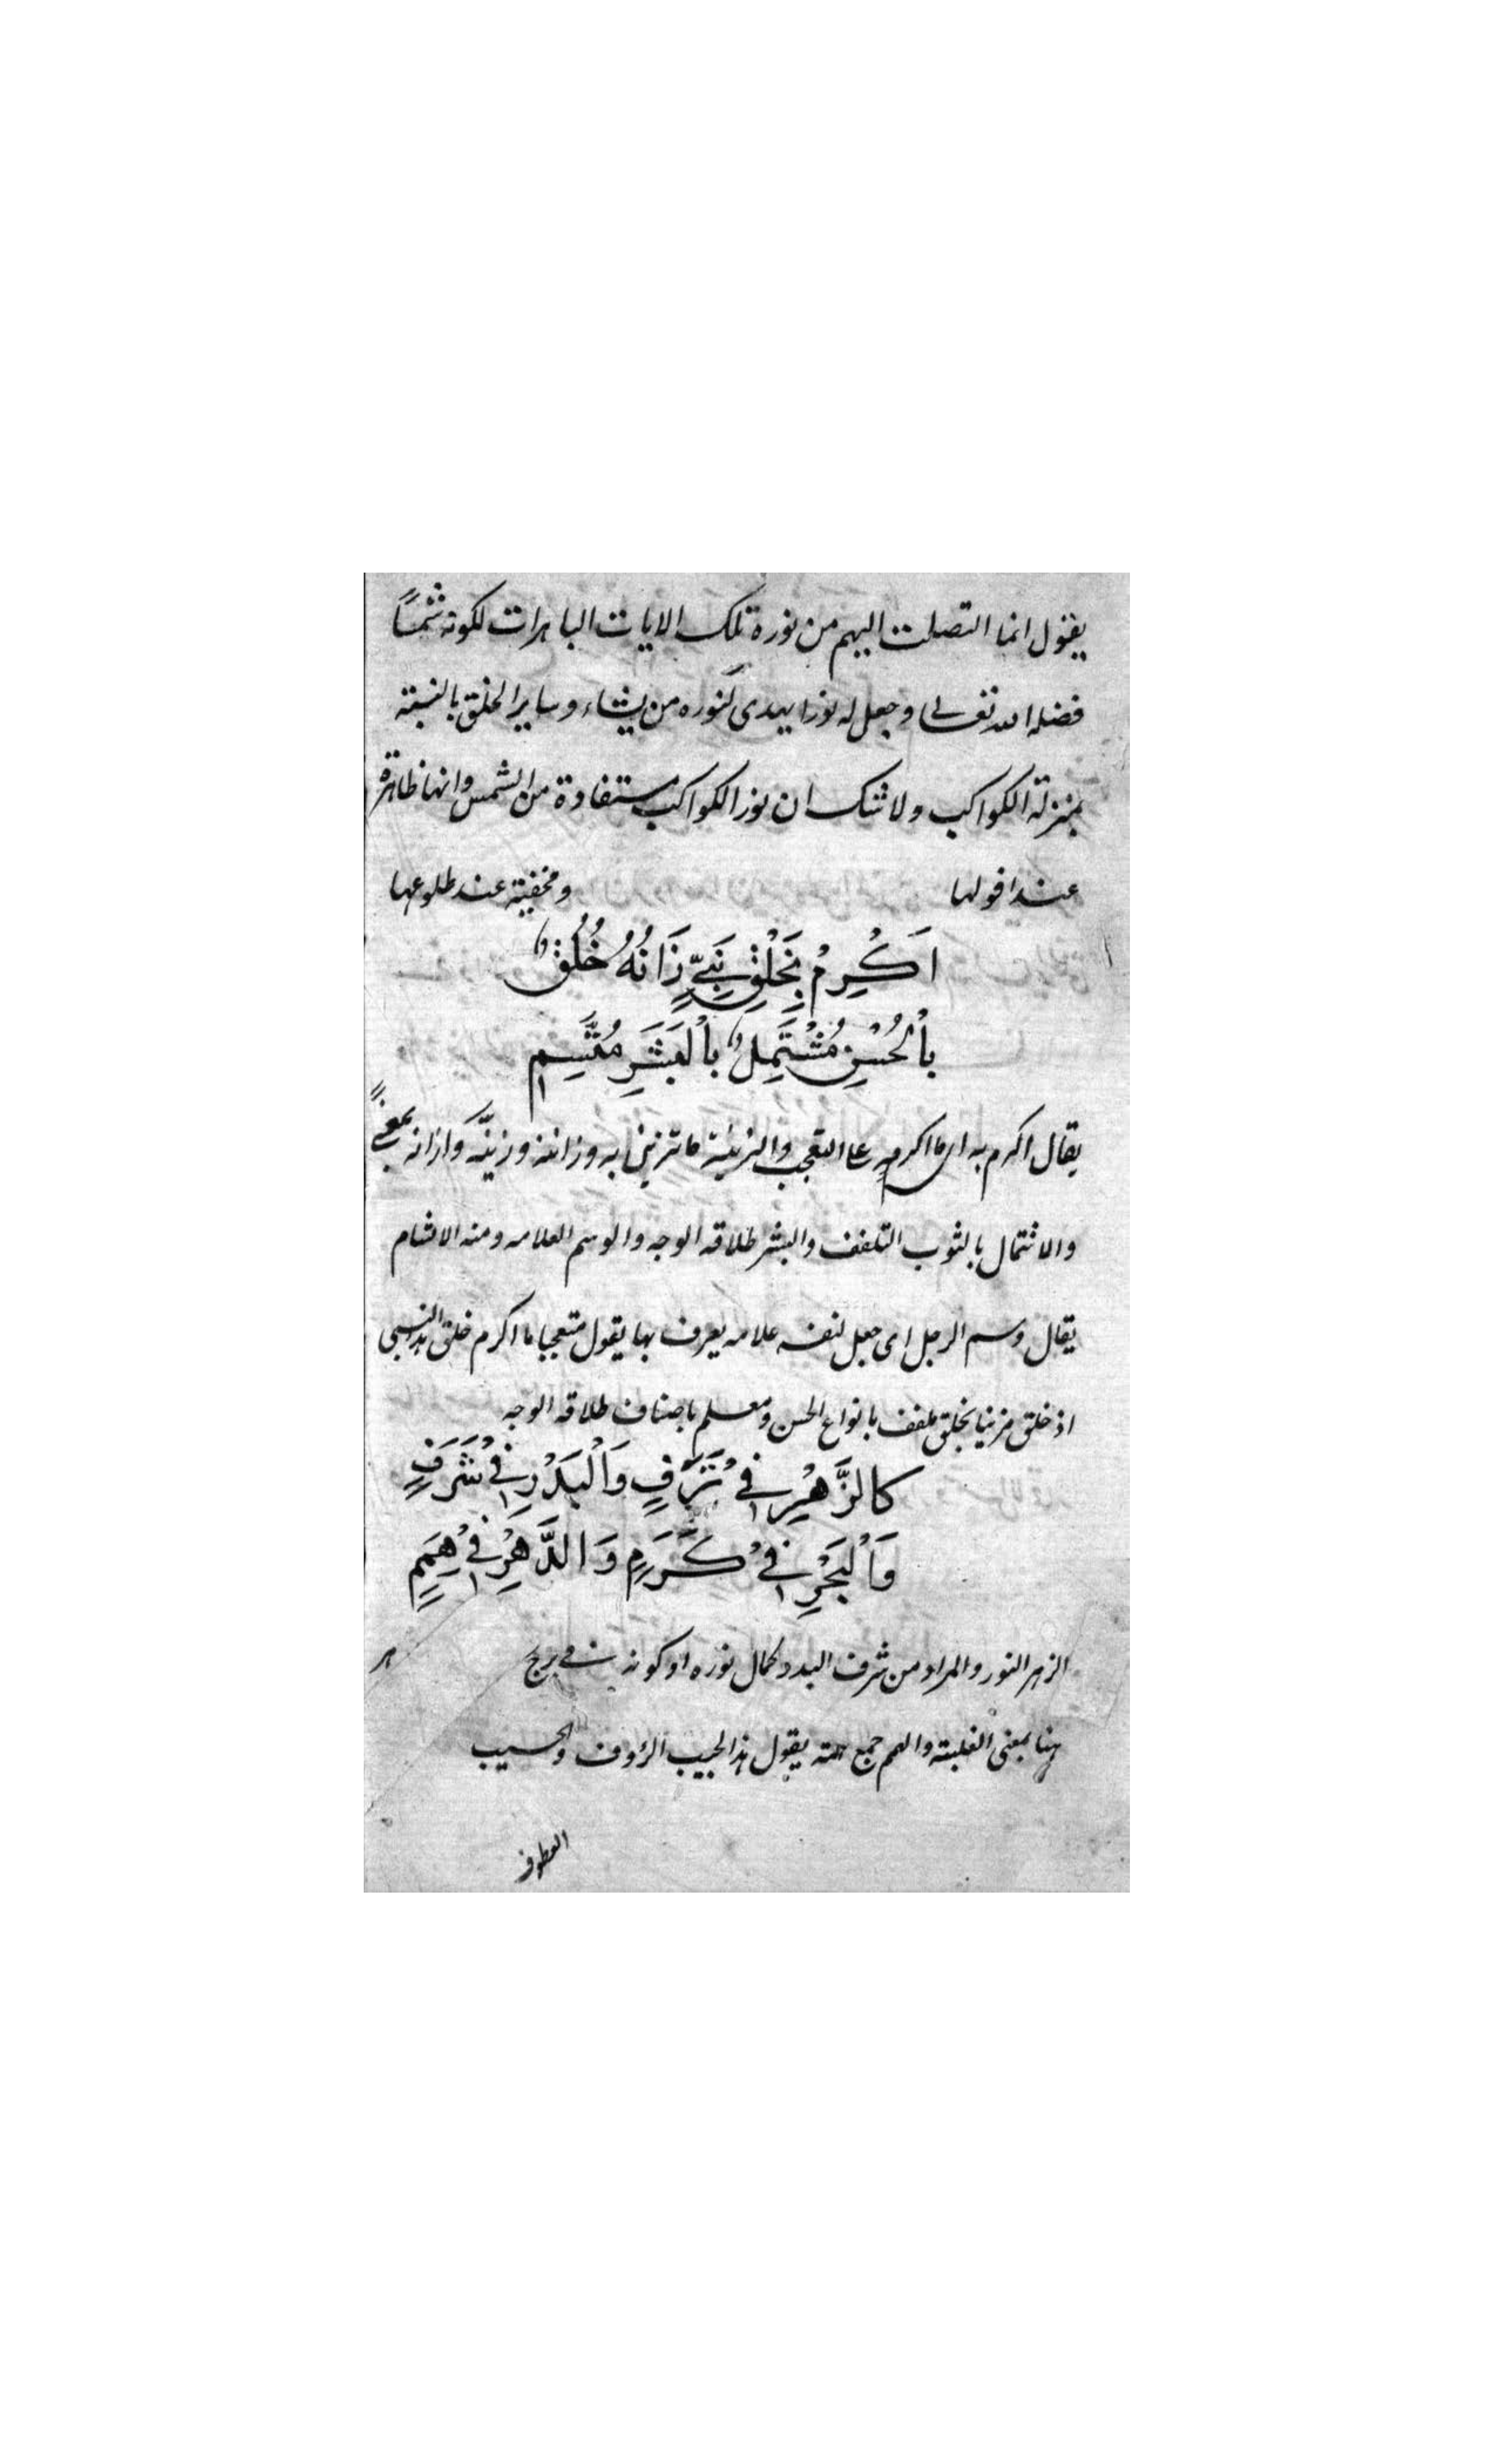 يقول انما اتصلت اليهم من نوره تلك الايات الباهرات لكونه شمسًا
فضله الله تعالى وجعل له نورا يهدى لنوره من يشاء وساير الخلق بالنسبة
بمنزلة الكواكب ولا شك ان نور الكواكب مستفادة من الشمس وانها ظاهرة
عند افولها ومخفية عند طلوعها
اَكْرِمْ بِخَلْقِ نَبِيٍّ زَانَهُ خُلُقٌ
بِاْلحُسْنِ مُشْتَمِلٌ بِاْلبَشَرِ مُتَّسِمٍ
يقال اكرم به اى ما اكرمه على التعجب والزينة ما تزين به وزانه وزيّنه وازانه بمعنىً
والاشتمال بالثوب التلفف والبشر طلاقه الوجه والوسم العلامه ومنه الاتسام
يقال وسم الرجل اى جعل لنفسه علامه يعرف بها يقول متعجبا ما اكرم خلق هذا النبى
اذ خلق مزينا بخلق ملفف بانواع الحسن ومعلم باصناف طلاقه الوجه
كالزَّهْرِ فِى تَرَفٍ وَاْلبَدْرِ فِى شَرَفٍ
وَاْلبَحْرِ فِى كَرَمٍ وَالدَّهْرِ فِى هِمَمٍ
الزهر النور والمراد من شرف البدر كمال نوره او كونه فى برج
هنا بمعنى الغلبة والهمم جمع همة يقول هذا الحبيب الرؤوف والحسيب
العطوف